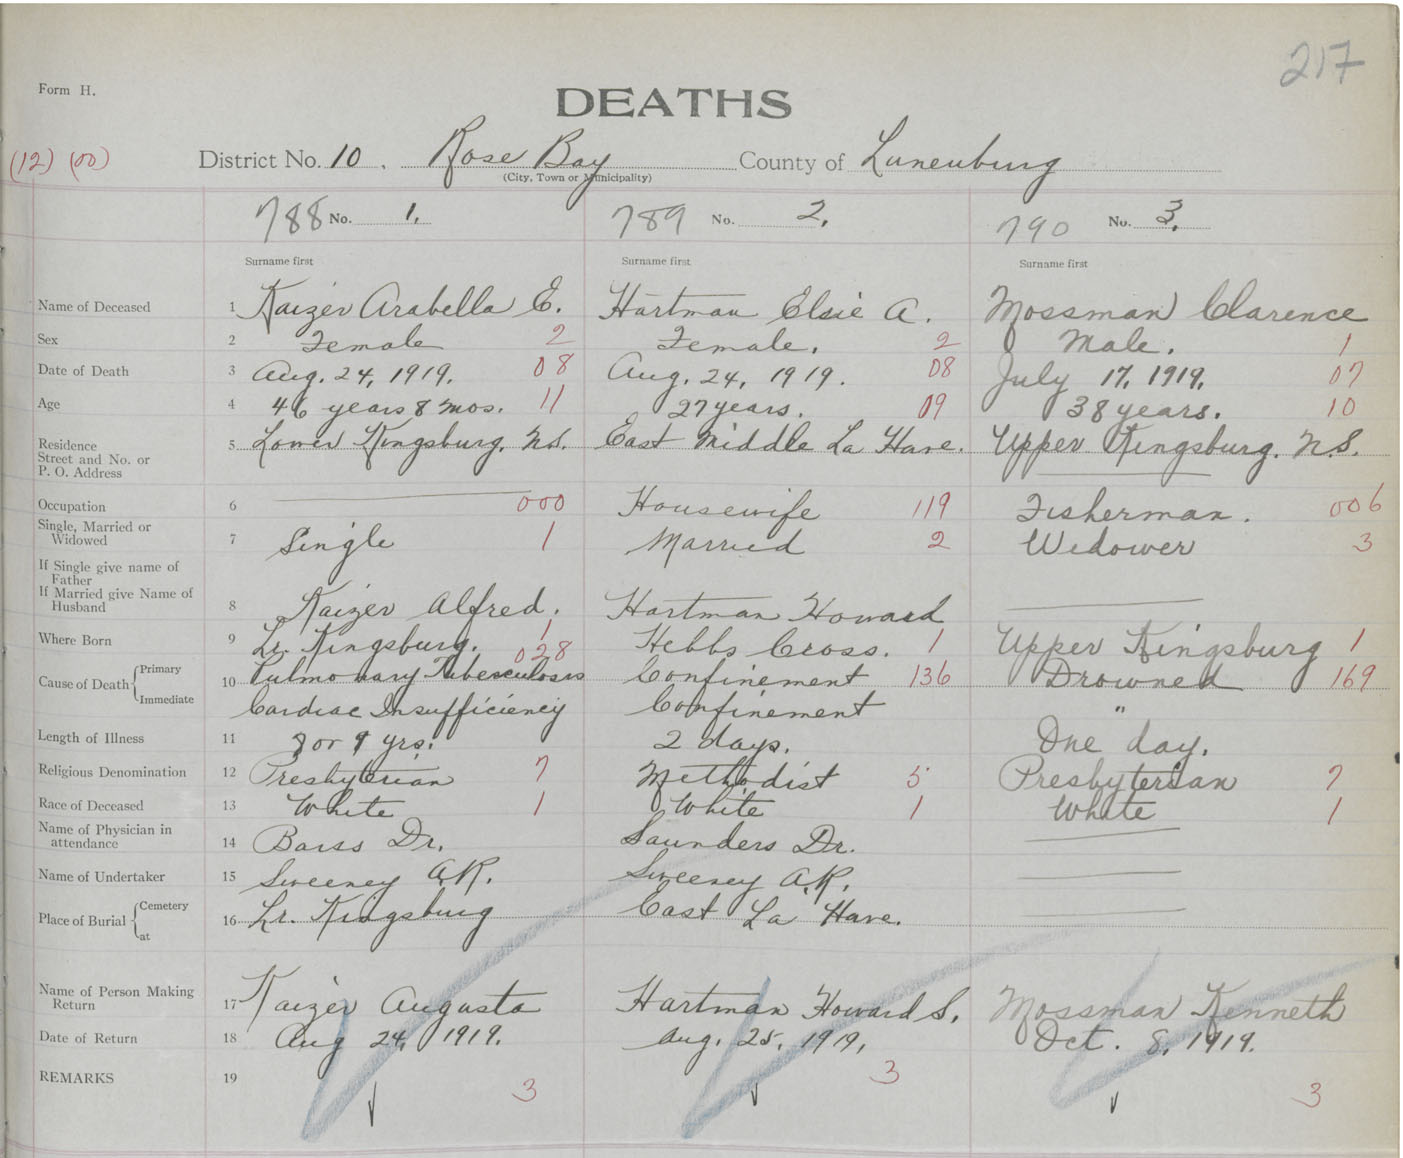 217
Form H.
DEATHS
(12) (00) District No. 10. Rose Bay County of Lunenburg
(City, Town or Municipality)
788 No. 1. 789 No. 2. 790 No. 3.
Surname first Surname first Surname first
Name of Deceased 1 Kaizer Arabella E. Hartman Elsie A. Mossman Clarence
Sex 2 Female 2 Female. 2 Male. 1
Date of Death 3 Aug. 24, 1919. 08 Aug. 24, 1919. 08 July 17, 1919. 07
Age 4 46 years 8 mos. 11 27 years. 09 38 years. 10
Residence
Street and No. or
P. O. Address
5 Lower Kingsburg, N.S. East Middle La Have. Upper Kingsburg. N.S.
Occupation 6 000 Housewife 119 Fisherman. 006
Single, Married or
Widowed
7 Single 1 Married 2 Widower 3
If Single give name of
Father
If Married give Name of
Husband
8 Kaizer Alfred. Hartman Howard
Where Born 9 Lr. Kingsburg. 1 Hebbs Cross. 1 Upper Kingsburg 1
Cause of Death Primary
Immediate
10 Pulmonary Tuberculosis 028 Confinement 136 Drowned 169
Cardiac Insufficiency Confinement "
Length of Illness 11 8 or 9 yrs. 2 days. One day.
Religious Denomination 12 Presbyterian 7 Methodist 5 Presbyterian 7
Race of Deceased 13 White 1 White 1 White 1
Name of Physician in
attendance
14 Barss Dr. Saunders Dr.
Name of Undertaker 15 Sweeney A.R. Sweeney A.R.
Place of Burial Cemetery
at
16 Lr. Kingsburg East La Have.
Name of Person Making
Return
17 Kaizer Augusta Hartman Howard S. Mossman Kenneth
Date of Return 18 Aug 24, 1919. Aug. 25, 1919. Oct. 8, 1919.
REMARKS 19 3 3 3